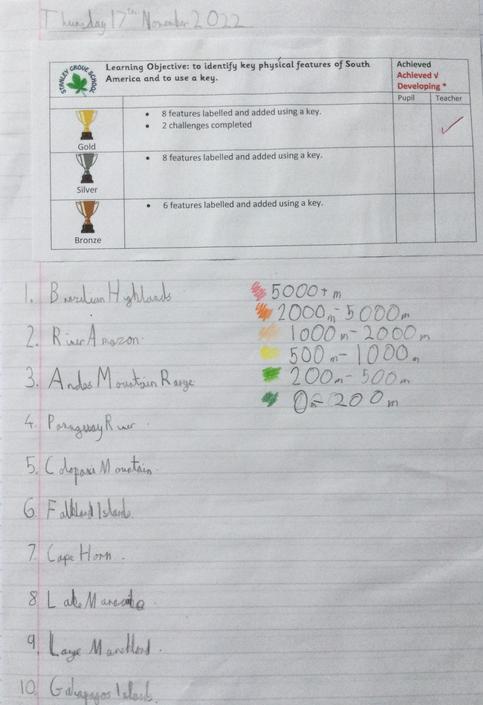 Thursday 17th November 2022
STANLEY GROVE SCHOOL
Learning Objective: to identify key physical features of South
America and to use a key.
Achieved
Achieved √
Developing *
Pupil Teacher
Gold
• 8 features labelled and added using a key.
• 2 challenges completed
Silver
• 8 features labelled and added using a key.
Bronze
• 6 features labelled and added using a key.
1. Brazilian Highlands
5000+ m
2000m-5000m
2. River Amazon
1000m-2000m
500m-1000m
3. Andes Mountain Range
200m-500m
0-200m
4. Paraguay River
5. Mountain
6. Falkland Islands
7. Cape Horn.
8 Lake
9.
10 Galapagos Islands.